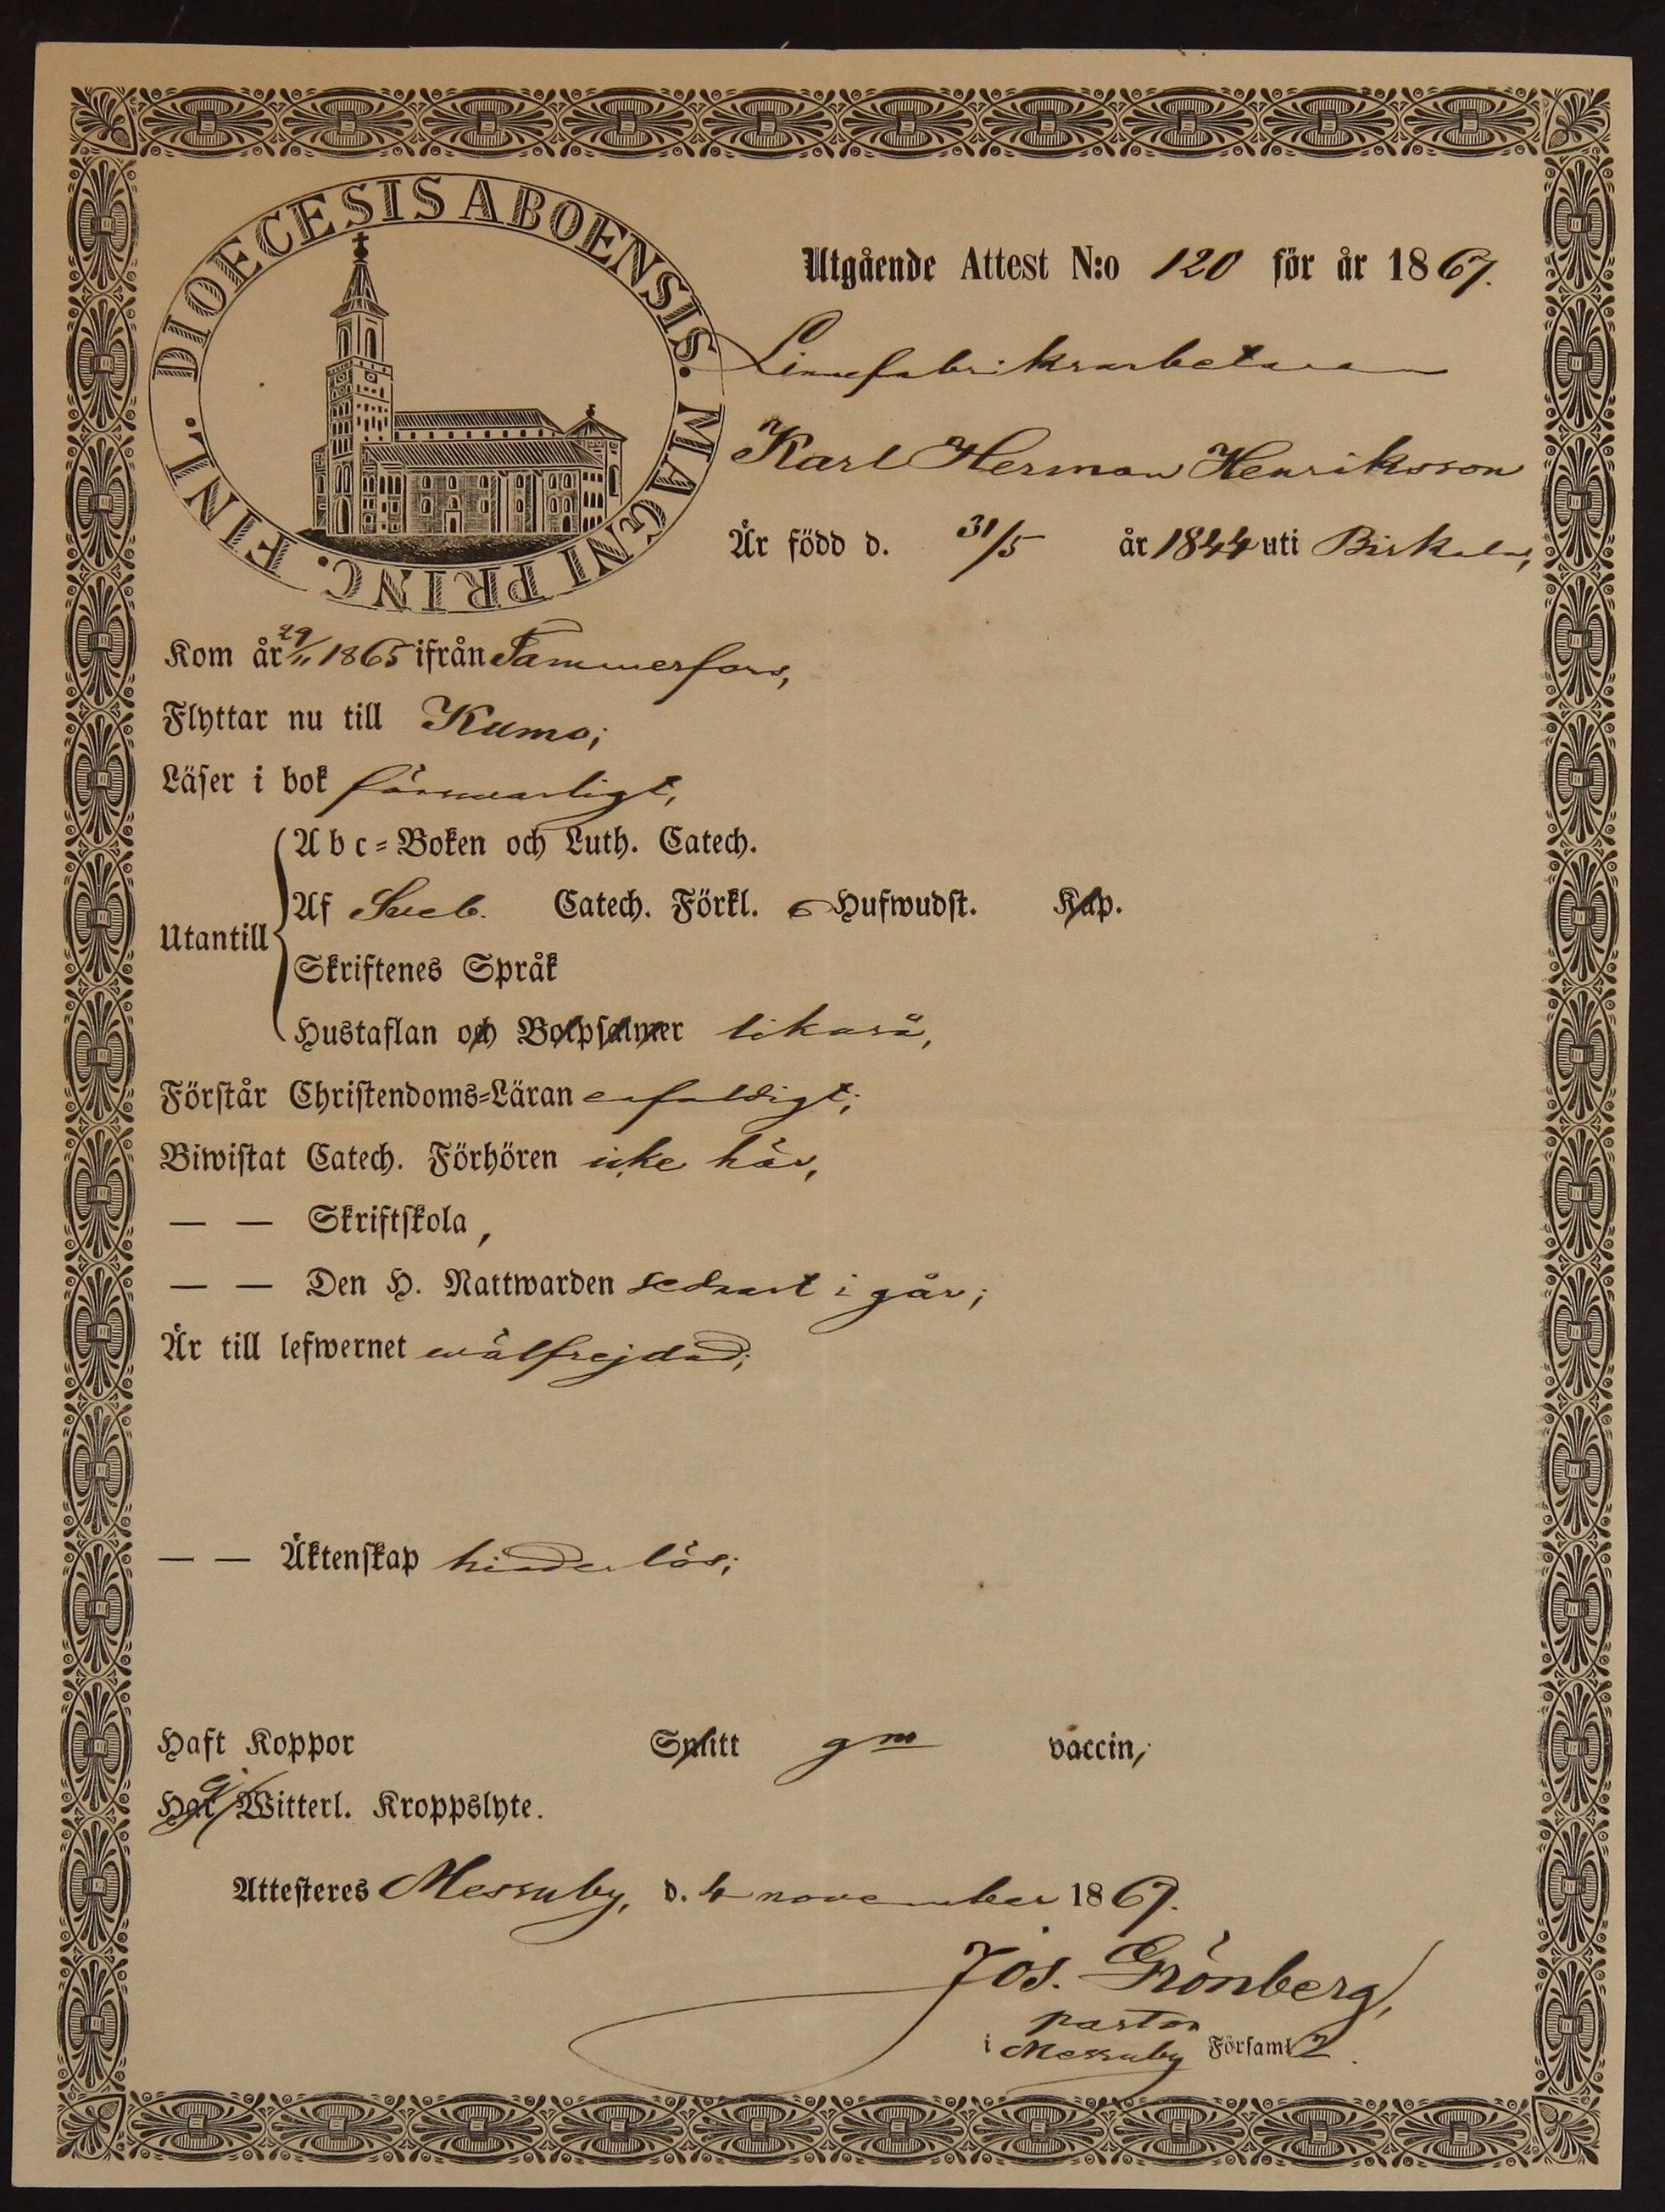 DIOECESIS ABOENSIS. MAGNI PRINC. FINL.
Utgående Attest N:o 120 för år 1867.
Linnefabriksarbetaren
Karl Herman Henriksson
Är född d. 31/5 år 1844 uti Birkala,
Kom år 29/11 1865 ifrån Tammerfors,
Flyttar nu till Kumo;
Läser i bok försvarligt,
Utantill
Abc-Boken och Luth. Catech.
Af Sveb. Catech. Förkl. 6 Hufwudst. Kap.
Skriftenes Språk
Hustaflan och Botpsalmer likaså,
Förstår Christendoms-Läran enfaldigt;
Biwistat Catech. Förhören icke här,
— — Skriftskola,
— — Den H. Nattwarden sednast i går;
Är till lefwernet wälfrejdad;
— — Äktenskap hinderlös;
Haft Koppor Smitt gm vaccin,
Har ej Witterl. Kroppslyte.
Attesteres Messuby, d. 4 november 1867.
Jos. Grönberg,
pastor
i Messuby Församl